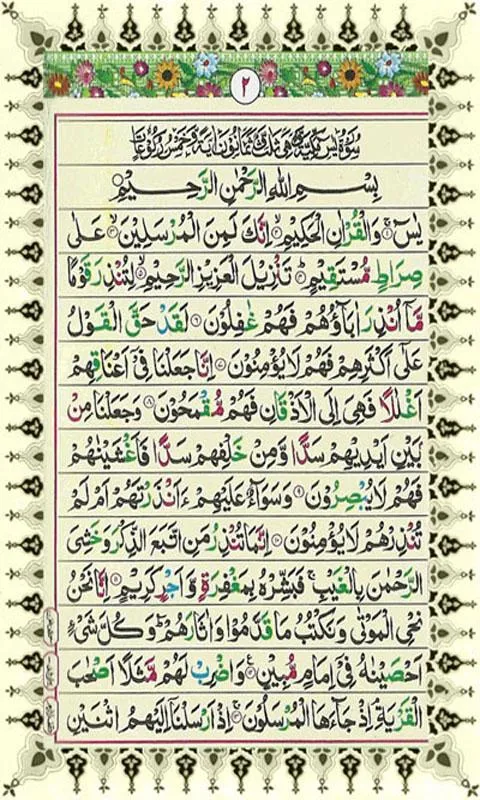 ٢
سُوْرَةُ يٰسٓ مَكِّيَّةٌ وَّهِيَ ثَلٰثٌ وَّثَمَانُوْنَ اٰيَةً وَّخَمْسُ رُكُوْعَاتٍ
بِسْمِ اللهِ الرَّحْمٰنِ الرَّحِيْمِ
يٰسٓ ۚ۝١ وَالْقُرْاٰنِ الْحَكِيْمِ ۙ۝٢ اِنَّكَ لَمِنَ الْمُرْسَلِيْنَ ۙ۝٣ عَلٰى
صِرَاطٍ مُّسْتَقِيْمٍ ؕ۝٤ تَنْزِيْلَ الْعَزِيْزِ الرَّحِيْمِ ۙ۝٥ لِتُنْذِرَ قَوْمًا
مَّاۤ اُنْذِرَ اٰبَآؤُهُمْ فَهُمْ غٰفِلُوْنَ ۝٦ لَقَدْ حَقَّ الْقَوْلُ
عَلٰۤى اَكْثَرِهِمْ فَهُمْ لَا يُؤْمِنُوْنَ ۝٧ اِنَّا جَعَلْنَا فِيْۤ اَعْنَاقِهِمْ
اَغْلٰلًا فَهِيَ اِلَى الْاَذْقَانِ فَهُمْ مُّقْمَحُوْنَ ۝٨ وَجَعَلْنَا مِنْۢ
بَيْنِ اَيْدِيْهِمْ سَدًّا وَّمِنْ خَلْفِهِمْ سَدًّا فَاَغْشَيْنٰهُمْ
فَهُمْ لَا يُبْصِرُوْنَ ۝٩ وَسَوَآءٌ عَلَيْهِمْ ءَاَنْذَرْتَهُمْ اَمْ لَمْ
تُنْذِرْهُمْ لَا يُؤْمِنُوْنَ ۝١٠ اِنَّمَا تُنْذِرُ مَنِ اتَّبَعَ الذِّكْرَ وَخَشِيَ
الرَّحْمٰنَ بِالْغَيْبِ ۚ فَبَشِّرْهُ بِمَغْفِرَةٍ وَّاَجْرٍ كَرِيْمٍ ۝١١ اِنَّا نَحْنُ
نُحْيِ الْمَوْتٰى وَنَكْتُبُ مَا قَدَّمُوْا وَاٰثَارَهُمْ ؕ وَكُلَّ شَيْءٍ
اَحْصَيْنٰهُ فِيْۤ اِمَامٍ مُّبِيْنٍ ۝١٢ وَاضْرِبْ لَهُمْ مَّثَلًا اَصْحٰبَ
الْقَرْيَةِ ۘ اِذْ جَآءَهَا الْمُرْسَلُوْنَ ۝١٣ اِذْ اَرْسَلْنَاۤ اِلَيْهِمُ اثْنَيْنِ